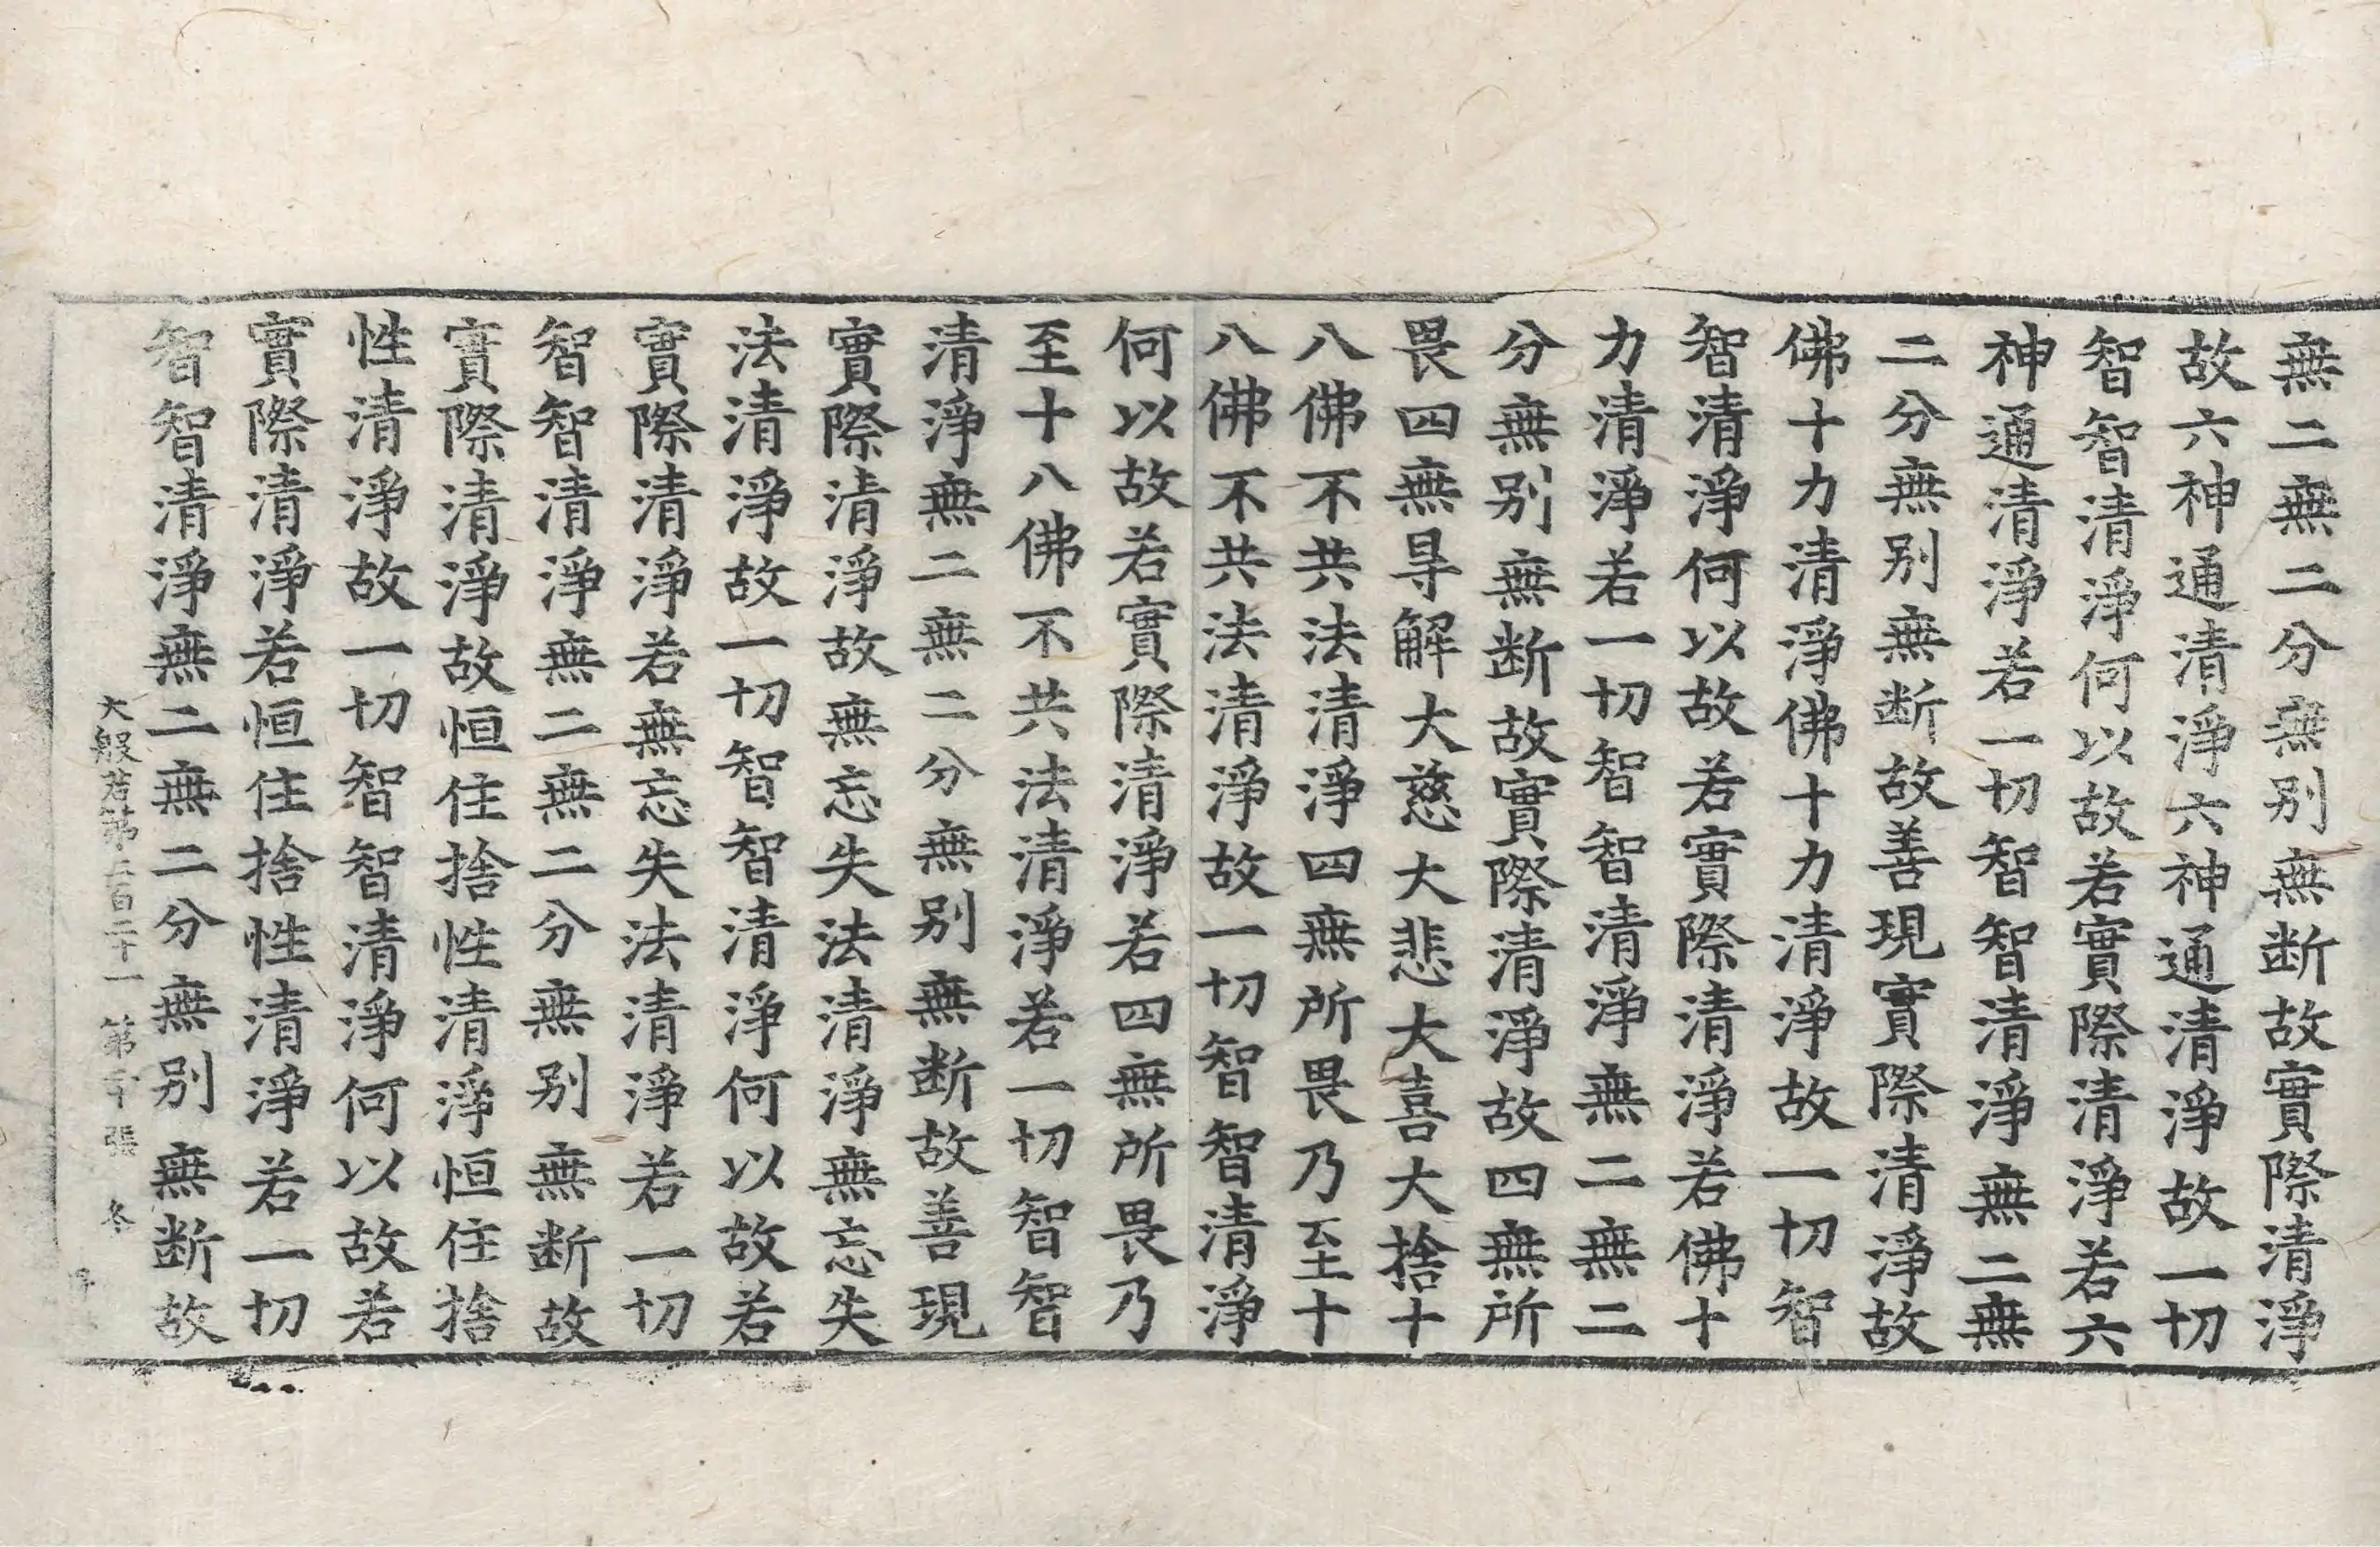 無二無二分無别無断故實際清淨
故六神通清淨六神通清淨故一切
智智清淨何以故若實際清淨若六
神通清淨若一切智智清淨無二無
二分無别無断故善現實際清淨故
佛十力清淨佛十力清淨故一切智
智清淨何以故若實際清淨若佛十
力清淨若一切智智清淨無二無二
分無别無断故實際清淨故四無所
畏四無㝵解大慈大悲大喜大捨十
八佛不共法清淨四無所畏乃至十
八佛不共法清淨故一切智智清淨
何以故若實際清淨若四無所畏乃
至十八佛不共法清淨若一切智智
清淨無二無二分無别無断故善現
實際清淨故無忘失法清淨無忘失
法清淨故一切智智清淨何以故若
實際清淨若無忘失法清淨若一切
智智清淨無二無二分無别無断故
實際清淨故恒住捨性清淨恒住捨
性清淨故一切智智清淨何以故若
實際清淨若恒住捨性清淨若一切
智智清淨無二無二分無别無断故
大般若第二百二十一 第 張 冬